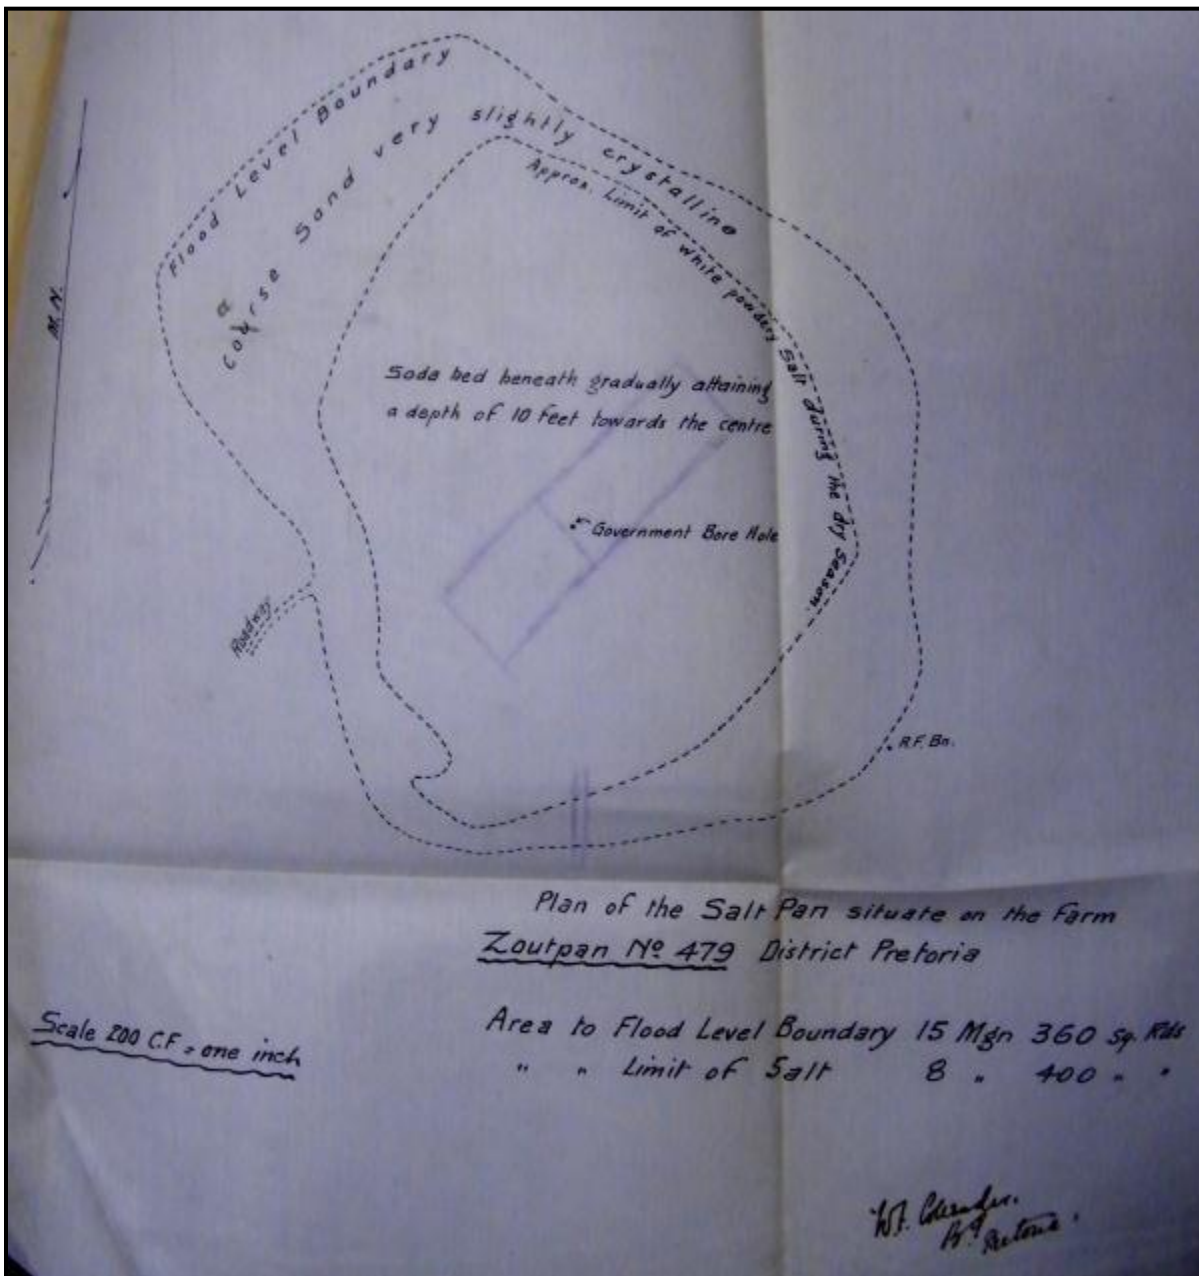 Flood Level Boundary
Coarse Sand very slightly crystalline
Approx. Limit of white powdery Salt during the dry Season.
M.N.
Soda bed beneath gradually attaining
a depth of 10 feet towards the centre
Government Bore Hole
Roadway
R.F. Bn.
Plan of the Salt Pan situate on the Farm
Zoutpan No 479 District Pretoria
Scale 200 C.F = one inch
Area to Flood Level Boundary 15 Mgn 360 Sq. Rds
" " Limit of Salt 8 " 400 " "
Pretoria.